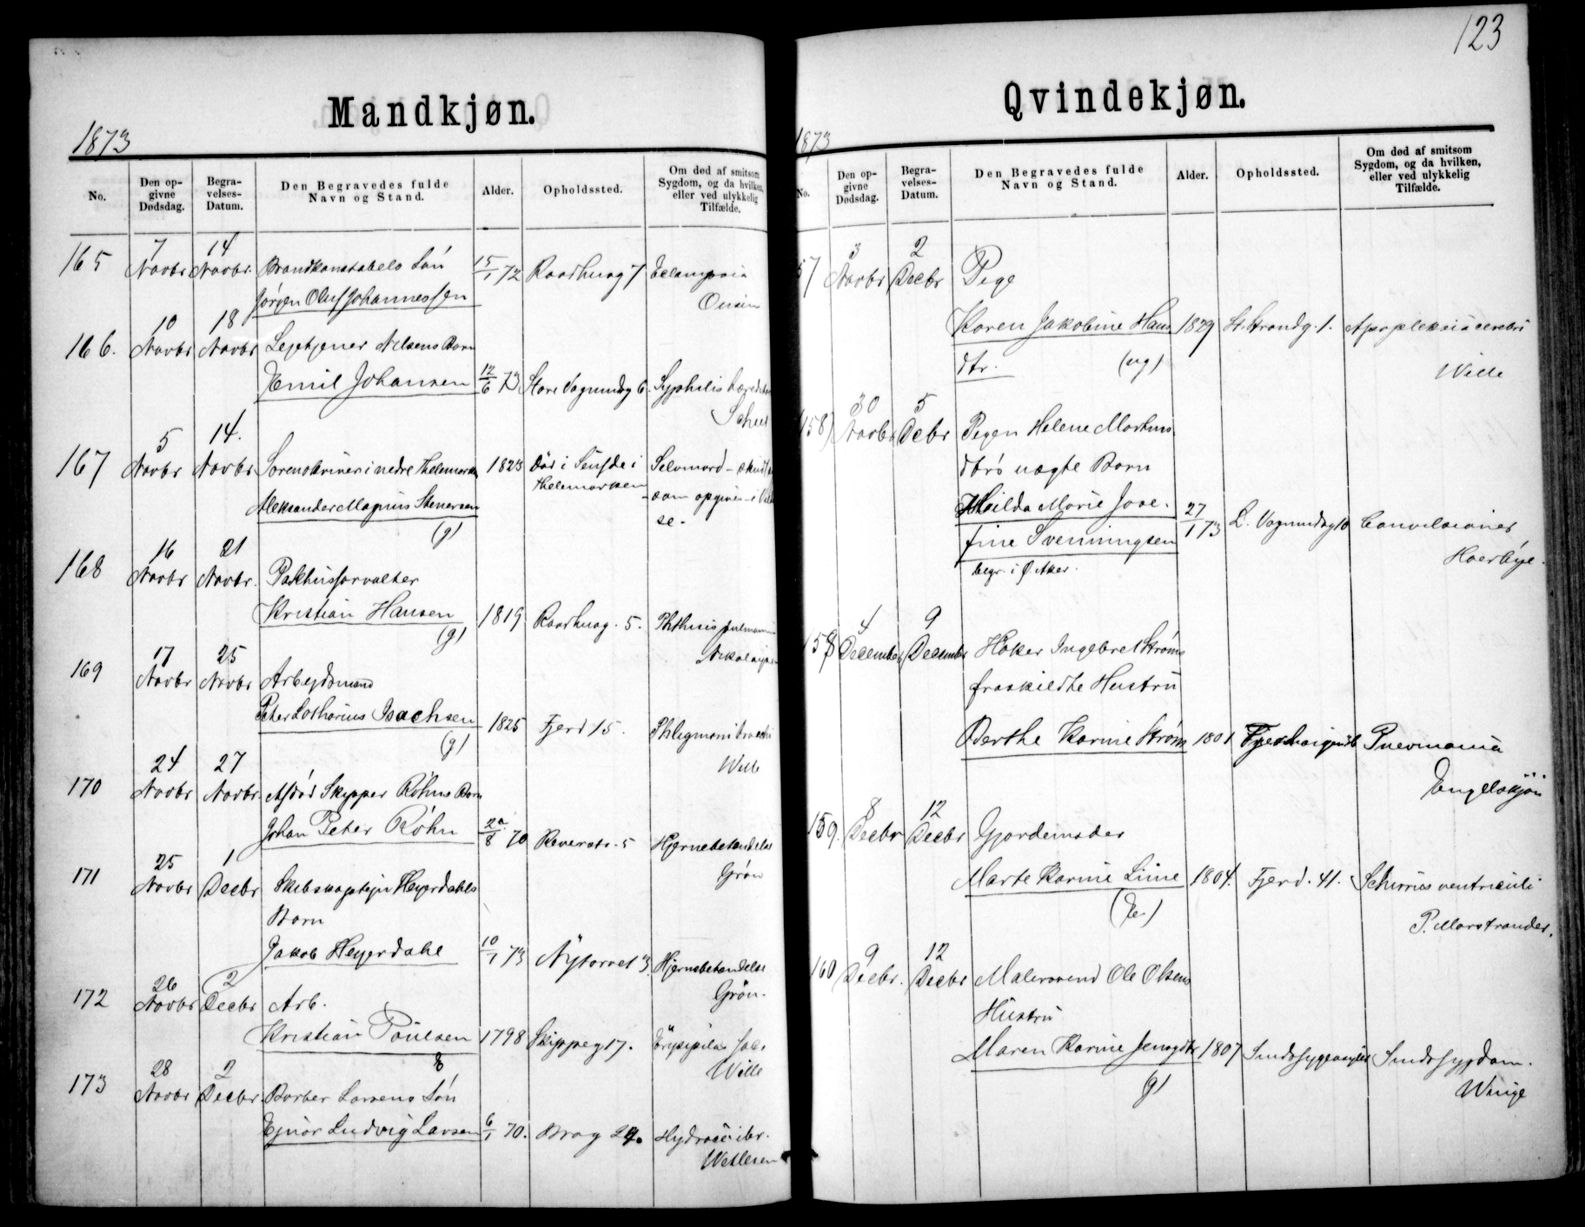 123
Mandkjøn.
1873
No.
Den op-
givne
Dødsdag.
Begra-
velses-
Datum.
Den Begravedes fulde
Navn og Stand.
Alder.
Opholdssted.
Om død af smitsom
Sygdom, og da hvilken,
eller ved ulykkelig
Tilfælde.
165 7 Novbr 14 Novbr Brandkonstabels Søn 15/1 72 Raadhusg 7 Eclampsia
Jørgen Oluf Johannessen
166. 10 Novbr 18 Novbr Leietjener Nilsens Barn
Emil Johansen 12/6 73 Store Vognmdg 6. Syphilis
167 5 Novbr 14. Novbr Sorenskriver i nedre Thelemarken 1823 Død i i Selvmord
Thelemarken som opgives i
Aleksander Magnus Stenersen se.
(g)
168 16 Novbr 21 Novbr. Pakhusforvalter
Kristian Hansen 1819 Raadhusg. 5. Phthisis pulmonum
(g) Nikolaysen
169 17 Novbr 25 Novbr Arbeidsmand
Peter Lotharius Isachsen 1825 Fjerd 15.
(g) Wille
170 24 Novbr 27 Novbr. Afdød Skipper Røhns Barn
Johan Peter Røhn 2a/8 70 Reverstr. 5 Hjernebetændelse
Grøn
171 25 Novbr 1 Decbr Skibskaptein Heyerdahls
Barn
Jakob Heyerdahl 10/1 73 Nytorvet 3. Hjernebetændelse
Grøn.
172 26 Novbr 2 Decbr Arb.
Kristian Poulsen 1798 Skipperg 17. Erysipelas
Wille
173 28 Novbr 2 Decbr. Barber Larsens Søn
Ejnar Ludvig Larsen 6/1 70. Brog 29.
Wetlesen
Qvindekjøn.
1873
No.
Den op-
givne
Dødsdag.
Begra-
velses-
Datum.
Den Begravedes fulde
Navn og Stand.
Alder.
Opholdssted.
Om død af smitsom
Sygdom, og da hvilken,
eller ved ulykkelig
Tilfælde.
57 3 Novbr 2 Decbr Pige
Karen Jakobine Hans 1829 St. Strandg. 1. Apopleksia cerebri
dtr. (ug) Wille
158) 30 Novbr 5 Decbr Pigen Helene Martins
dtrs uægte Barn
Hilda Marie Jose- 27/1 73 L. Vognmdag 10 Convulsiones
fine Svenningsen
begr. i Ø Aker. Hoerbye.
158 4 December 9 December Høker Ingebret Strøms
fraskildte Hustru
Berthe Karine Strøm 1801 Pnevmonia
Engelskjøn
159. 8 Decbr 12 Decbr Gjordemoder
Marte Karine Lime 1804. Fjerd. 41. Schirrus ventriculi
(E.) P. Morstrander.
160 9 Decbr. 12 Decbr Malersvend Ole Olsens
Hustru
Maren Karine Jensdtr 1807 Sindssygeasylet Sindssygdom.
g) Winge